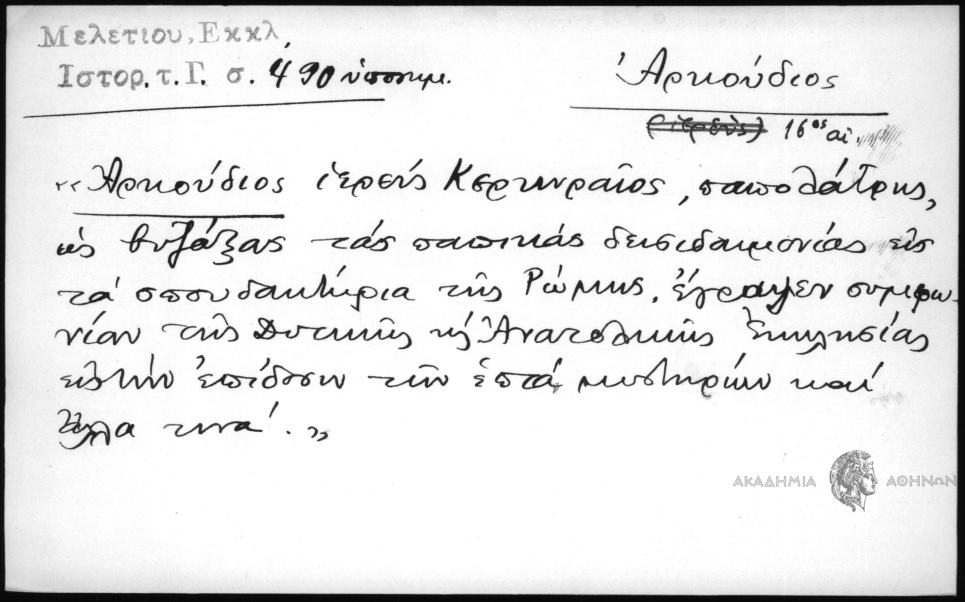 Μελετίου, Εκκλ.
Ιστορ. τ. Γ. σ. 490 υποσημ.
Ἀρκούδιος
(ἱερεὺς) 16ος αἰ.
«Ἀρκούδιος ἱερεὺς Κερκυραῖος, παπολάτρης,
ὡς βυζάξας τάς παπικάς δεισιδαιμονίας εἰς
τά σπουδαστήρια τῆς Ρώμης, ἔγραψεν συμφω-
νίαν τῆς Δυτικῆς κ Ἀνατολικῆς Ἐκκλησίας
εἰς τήν ἐπίδοσιν τῶν ἑπτά μυστηρίων καί
ἄλλα τινά.»
ΑΚΑΔΗΜΙΑ ΑΘΗΝΩΝ